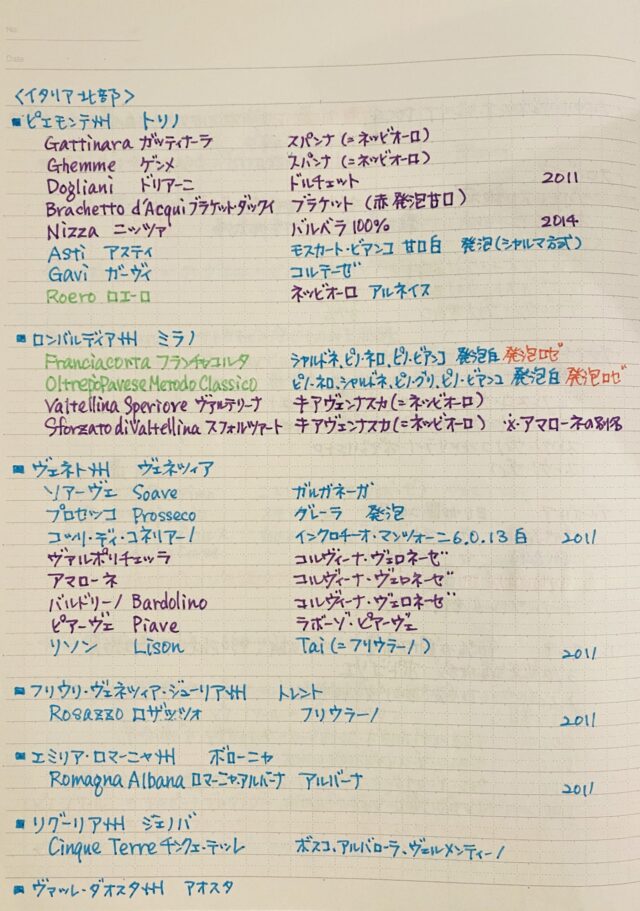 No.
Date
〈イタリア北部〉
■ピエモンテ州 トリノ
Gattinara ガッティナーラ スパンナ(=ネッビオーロ)
Ghemme ゲンメ スパンナ(=ネッビオーロ)
Dogliani ドリアーニ ドルチェット 2011
Brachetto d'Acqui ブラケット・ダックイ ブラケット(赤 発泡甘口)
Nizza ニッツァ バルベラ100% 2014
Asti アスティ モスカート・ビアンコ 甘口白 発泡(シャルマ方式)
Gavi ガーヴィ コルテーゼ
Roero ロエーロ ネッビオーロ アルネイス
■ロンバルディア州 ミラノ
Franciacorta フランチャコルタ シャルドネ、ピノ・ネロ、ピノ・ビアンコ 発泡白 発泡ロゼ
OltrepòPavese Metodo Classico ピノ・ネロ、シャルドネ、ピノ・グリ、ピノ・ビアンコ 発泡白 発泡ロゼ
Valtellina Speriore ヴァルテリーナ キアヴェンナスカ(=ネッビオーロ)
Sforzato di Valtellina スフォルツァート キアヴェンナスカ(=ネッビオーロ) ※アマローネの別名
■ヴェネト州 ヴェネツィア
ソアーヴェ Soave ガルガネーガ
プロセッコ Prosecco グレーラ 発泡
コッリ・ディ・コネリアーノ インクロチーオ・マンツォーニ6.0.13 白 2011
ヴァルポリチェッラ コルヴィーナ・ヴェロネーゼ
アマローネ コルヴィーナ・ヴェロネーゼ
バルドリーノ Bardolino コルヴィーナ・ヴェロネーゼ
ピアーヴェ Piave ラボーゾ・ピアーヴェ
リソン Lison Tai(=フリウラーノ) 2011
■フリウリ・ヴェネツィア・ジューリア州 トレント
Rosazzo ロザッツォ フリウラーノ 2011
■エミリア・ロマーニャ州 ボローニャ
Romagna Albana ロマーニャ・アルバーナ アルバーナ 2011
■リグーリア州 ジェノバ
Cinque Terre チンクェ・テッレ ボスコ、アルバローラ、ヴェルメンティーノ
■ヴァッレ・ダオスタ州 アオスタ